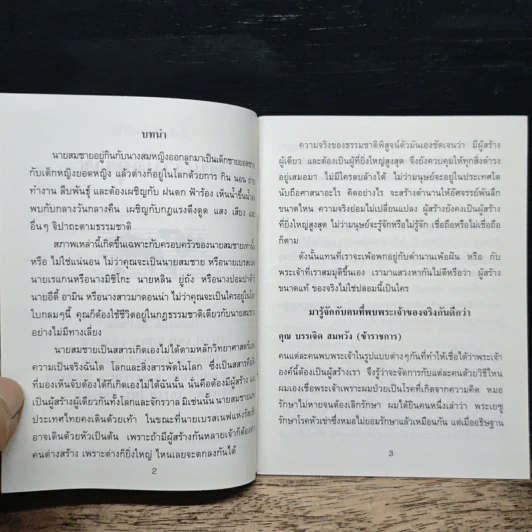 บทนำ
นายสมชายอยู่กินกับนางสมหญิงออกลูกมาเป็นเด็กชายยอดชาย
กับเด็กหญิงยอดหญิง แล้วต่างก็อยู่ในโลกด้วยการ กิน นอน ถ่าย
ทำงาน สืบพันธุ์ และต้องเผชิญกับ ฝนตก ฟ้าร้อง เห็นน้ำขึ้นน้ำลง
พบกับกลางวันกลางคืน เผชิญกับกฎแรงดึงดูด แสง เสียง และ
อื่นๆ จิปาถะตามธรรมชาติ
สภาพเหล่านี้เกิดขึ้นเฉพาะกับครอบครัวของนายสมชายเท่านั้น
หรือ ไม่ใช่แน่นอน ไม่ว่าคุณจะเป็นนายสมชาย หรือนายเบรสเนฟ
นายเรแกนหรือนางมิชิโกะ นายหลิน ยู่ถัง หรือนางปอมปาดัวร์
นายอีดี้ อามิน หรือนางสาวมาดอนน่า ไม่ว่าคุณจะเป็นใครอยู่ในโลก
ใบกลมๆนี้ คุณก็ต้องใช้ชีวิตอยู่ในกฎธรรมชาติเดียวกับนายสมชาย
อย่างไม่มีทางเลี่ยง
นายสมชายเป็นสสารเกิดเองไม่ได้ตามหลักวิทยาศาสตร์และ
ความเป็นจริงฉันใด โลกและสิ่งสารพัดในโลก ซึ่งเป็นสสารคือสิ่ง
ที่มองเห็นจับต้องได้ก็เกิดเองไม่ได้ฉันนั้น นั่นคือต้องมีผู้สร้าง และ
เป็นผู้สร้างผู้เดียวกันทั้งโลกและจักรวาล มิเช่นนั้น นายสมชายแห่ง
ประเทศไทยคงเดินด้วยเท้า ในขณะที่นายเบรสเนฟแห่งรัสเซีย
อาจเดินด้วยหัวเป็นต้น เพราะถ้ามีผู้สร้างกันหลายเจ้าก็ต้อง
คนต่างสร้าง เพราะต่างก็ยิ่งใหญ่ ไหนเลยจะตกลงกันได้
2
ความจริงของธรรมชาติพิสูจน์ตัวมันเองชัดเจนว่า มีผู้สร้าง
ผู้เดียว และต้องเป็นผู้ที่ยิ่งใหญ่สูงสุด จึงยังควบคุมให้ทุกสิ่งดำรง
อยู่เสมอมา ไม่มีใครลบล้างได้ ไม่ว่ามนุษย์จะอยู่ในประเทศใด
นับถือศาสนาอะไร คิดอย่างไร จะสร้างตำนานให้อัศจรรย์พันลึก
ขนาดไหน ความจริงย่อมไม่เปลี่ยนแปลง ผู้สร้างยังคงเป็นผู้สร้าง
ที่ยิ่งใหญ่สูงสุด ไม่ว่ามนุษย์จะรู้จักหรือไม่รู้จัก เชื่อถือหรือไม่เชื่อถือ
ก็ตาม
ดังนั้นแทนที่เราจะเพ้อพกอยู่กับตำนานเพ้อฝัน หรือ กับ
พระเจ้าที่เราสมมุติขึ้นเอง เรามาแสวงหากันไม่ดีหรือว่า ผู้สร้าง
ขนาดแท้ ของจริงไม่ใช่ปลอมนี้เป็นใคร
มารู้จักกับคนที่พบพระเจ้าของจริงกันดีกว่า
คุณ บรรเจิด สมหวัง (ข้าราชการ)
คนแต่ละคนพบพระเจ้าในรูปแบบต่างๆกันที่ทำให้เชื่อได้ว่าพระเจ้า
องค์นี้ต้องเป็นผู้สร้างเรา จึงรู้ว่าจะจัดการกับแต่ละคนด้วยวิธีไหน
ผมเองเชื่อพระเจ้าเพราะผมป่วยเป็นโรคที่เกิดจากความคิด หมอ
รักษาไม่หายจนต้องเลิกรักษา ผมได้ยินคนหนึ่งเล่าว่า พระเยซู
รักษาโรคหัวเข่าซึ่งหมอไม่ยอมรักษาแล้วเหมือนกัน แต่เมื่ออธิษฐาน
3